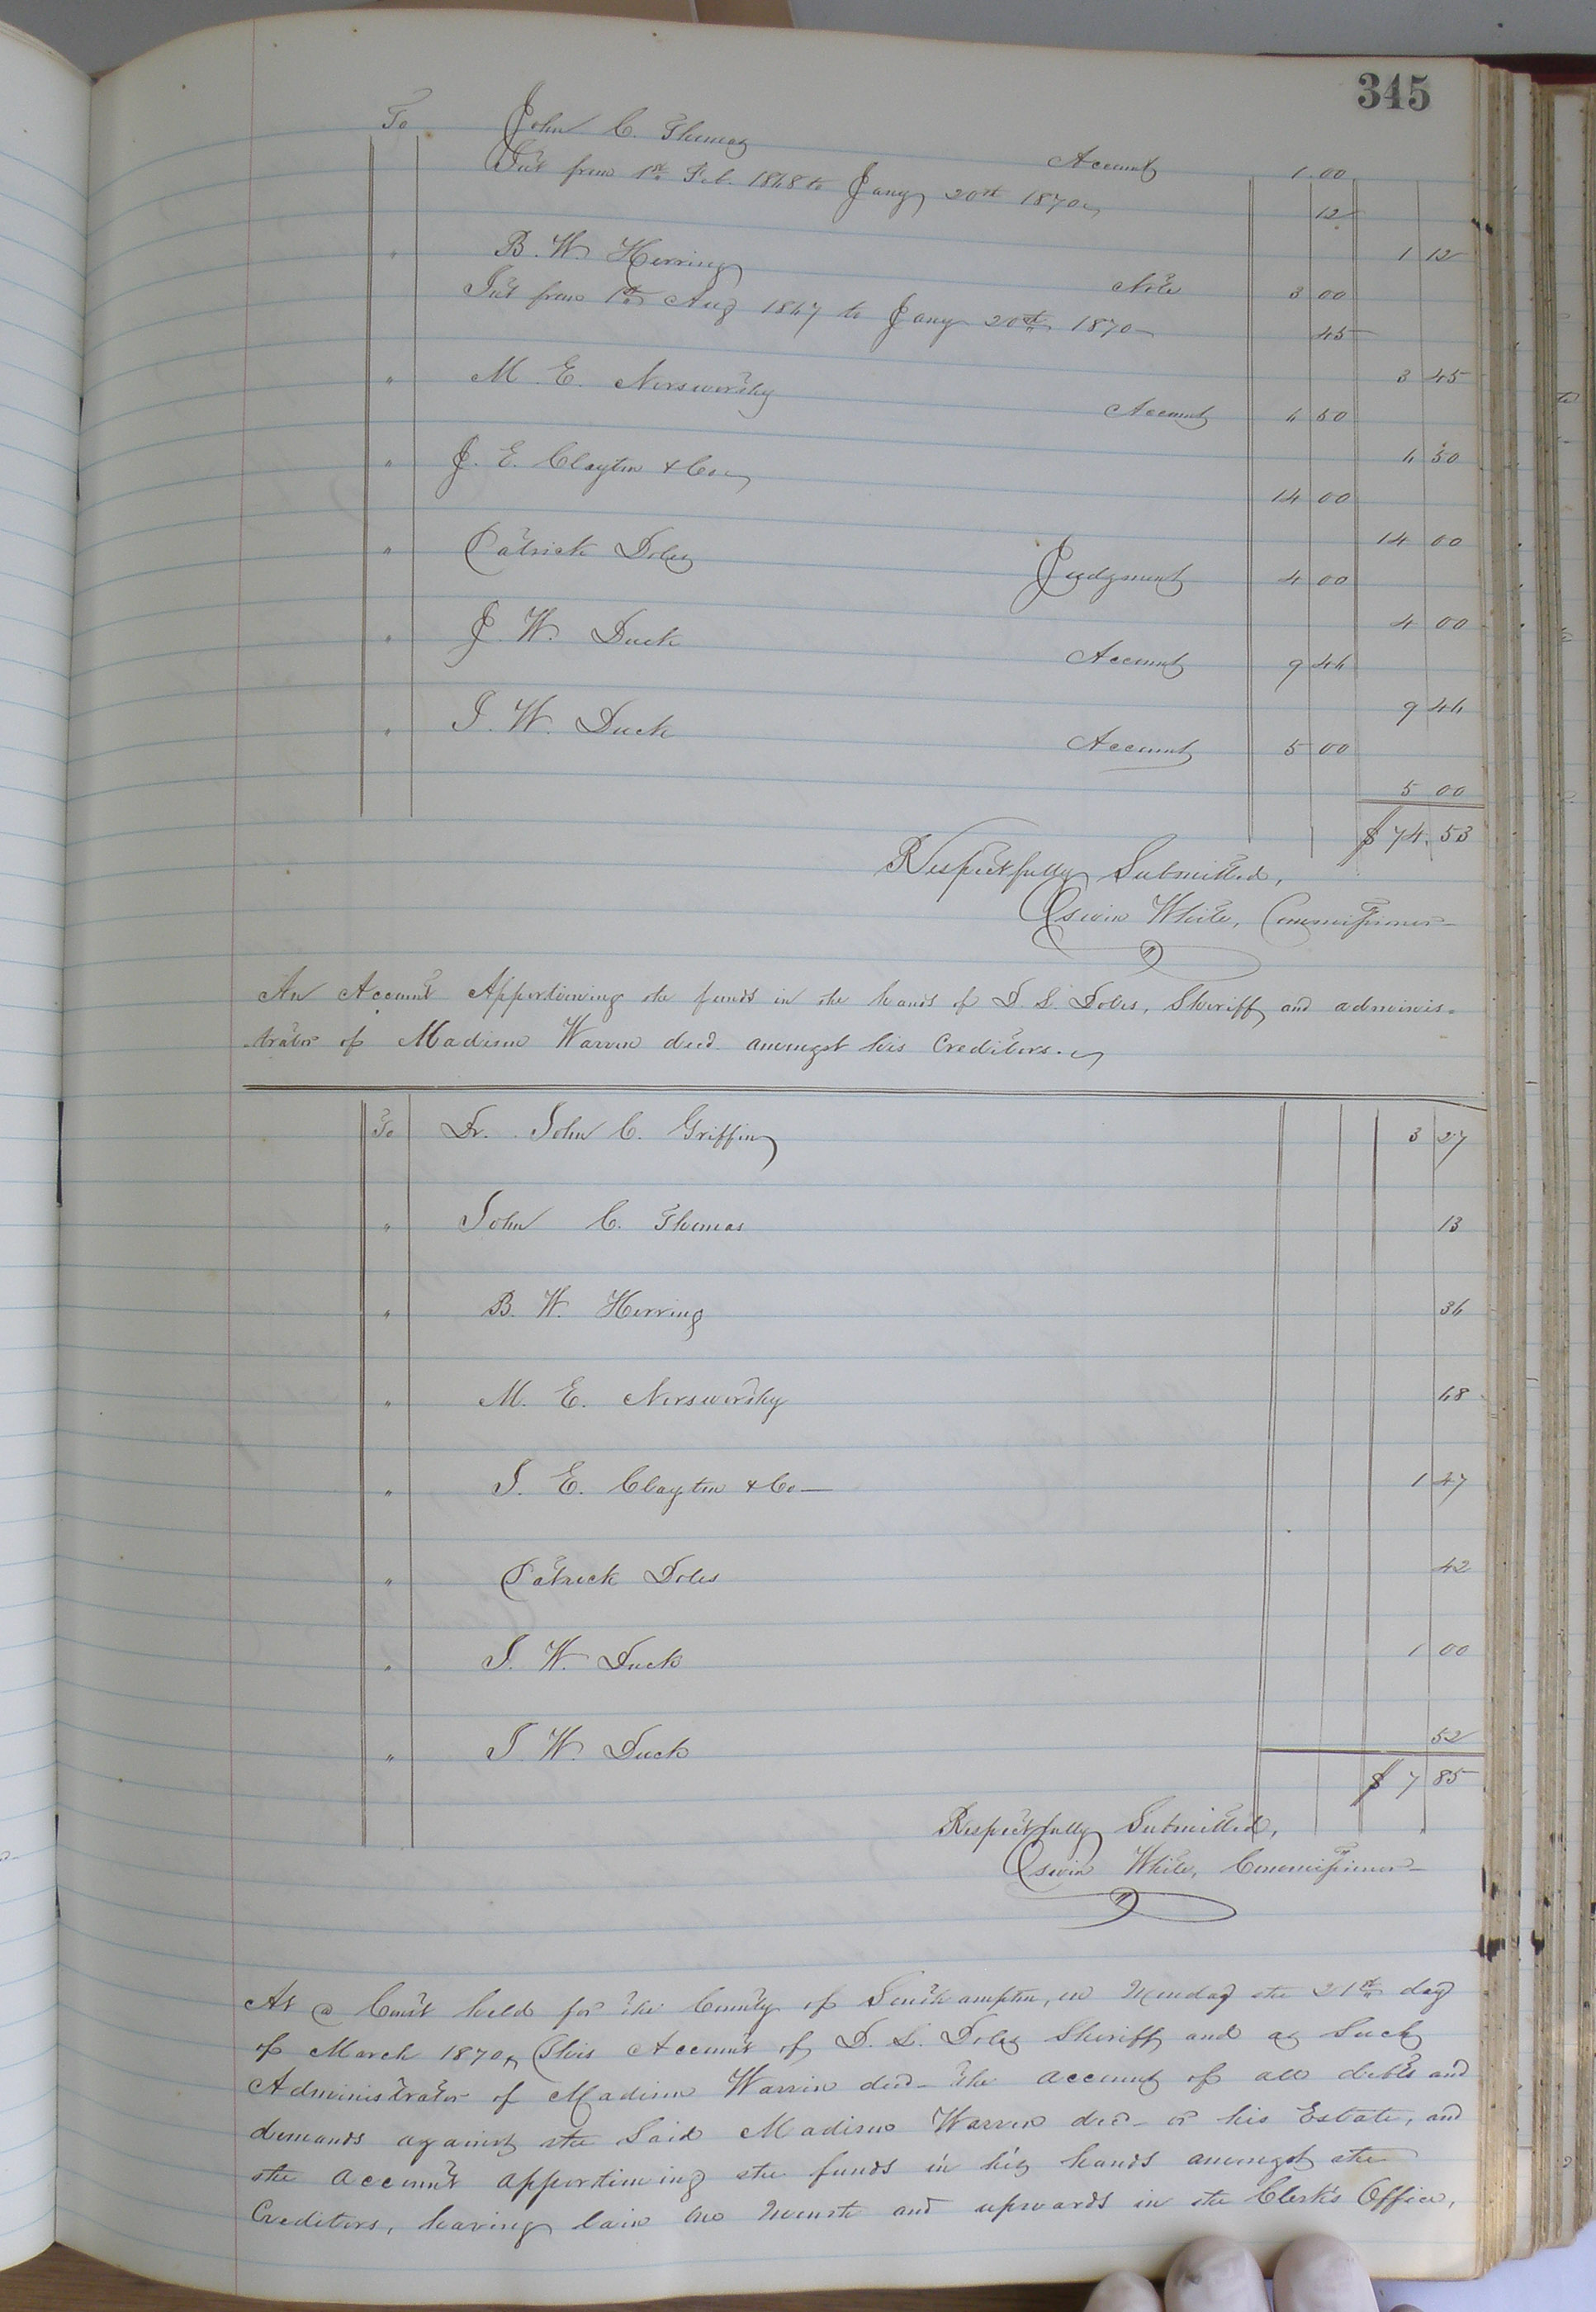 345
To John C. Thomas Account 1.00
Int from 1st Feb. 1868 to Jany 20th 1870 12
1 12
" B. W. Herring Note 3 00
Int from 1st Aug 1867 to Jany 20th 1870 45
3 45
" M. E. Norsworthy Account 6 50
6 50
" J. E. Clayton & Co 14 00
14 00
" Patrick Doles Judgment 4 00
4 00
" J. W. Duck Account 9 46
9 46
" J. W. Duck Account 5 00
5 00
$ 74.53
Respectfully Submitted,
Oswin White, Commissioner
An Account Apportioning the funds in the hands of D. S. Doles, Sheriff and adminis-
-trator of Madison Warren decd. amongst his Creditors.
To Dr. John C. Griffin 3 27
" John C. Thomas 13
" B. W. Herring 36
" M. E. Norsworthy 68
" J. E. Clayton & Co 1 47
" Patrick Doles 42
" J. W. Duck 1 00
" J. W. Duck 52
$ 7 85
Respectfully Submitted,
Oswin White, Commissioner
At a Court held for the County of Southampton, on Monday the 21st day
of March 1870, This Account of D. S. Doles Sheriff and as Such
Administrator of Madison Warren decd - the account of all debts and
demands against the Said Madison Warren decd - or his Estate, and
the account apportioning the funds in his hands amongst the
Creditors, having lain one Month and upwards in the Clerk's Office,